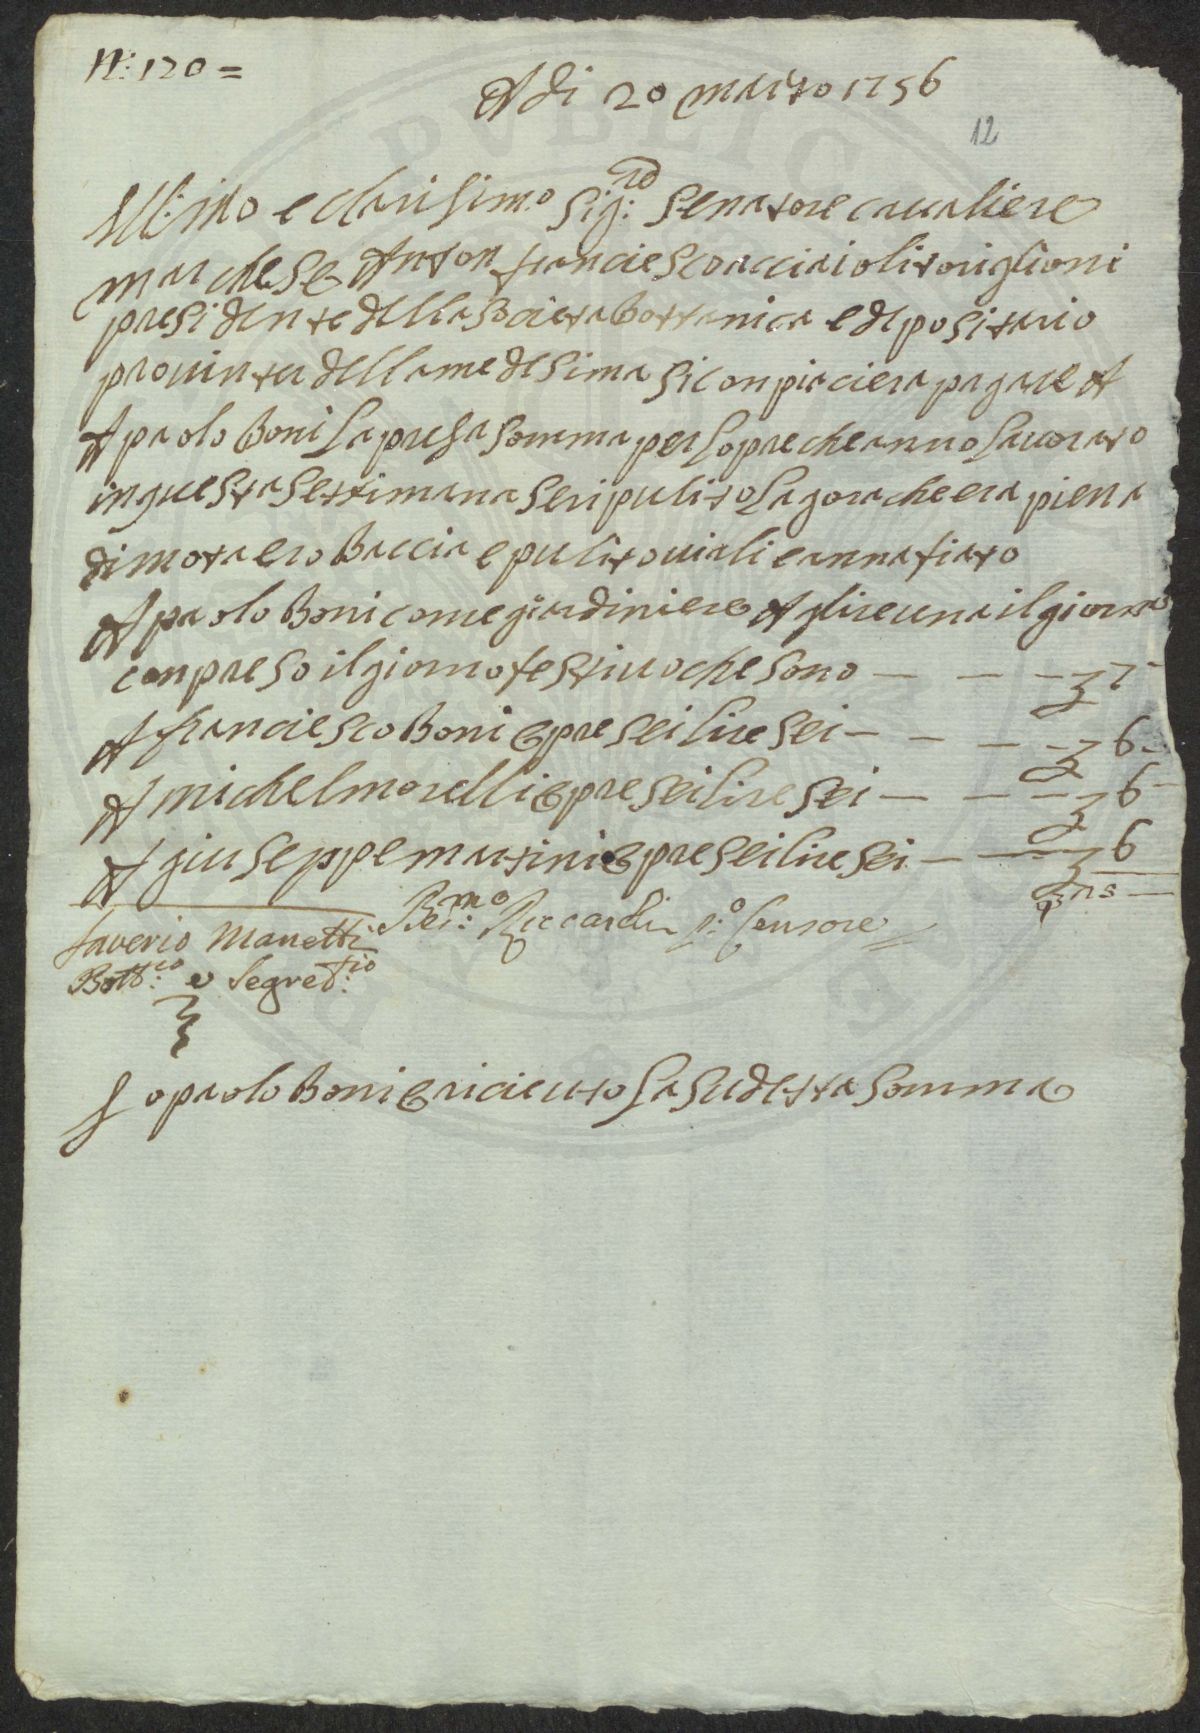 N: 120 =
A di 20 marzo 1756
12
Ill:mo e clarisimo Sig:re Senatore caualiere
marchese Anton franciesco acciaioli toriglioni
presidente della Società Bottanica e depositario
prouinter della medesima si conpiaciera pagare A
A paolo Boni la presa somma per lopre che anno lauorato
in questa settimana seripulito la gora che era piena
di mota e robaccia e pulito uiali e annafiato
A paolo Boni come giardiniere A lire una il giorno
conpreso il giorno festiuo che sono — — — £ 7 -
A franciesco Boni e pre sei lire sei — — — £ 6 -
A michel morelli e pre sei lire sei — — — £ 6 -
A giuseppe martini e pre sei lire sei — — £ 6
£ 25 —
Saverio Manetti
Ber:mo Riccardi p:o Censore
Bott:co e Segret:rio
Io paolo Boni e riceuto la sudetta somma